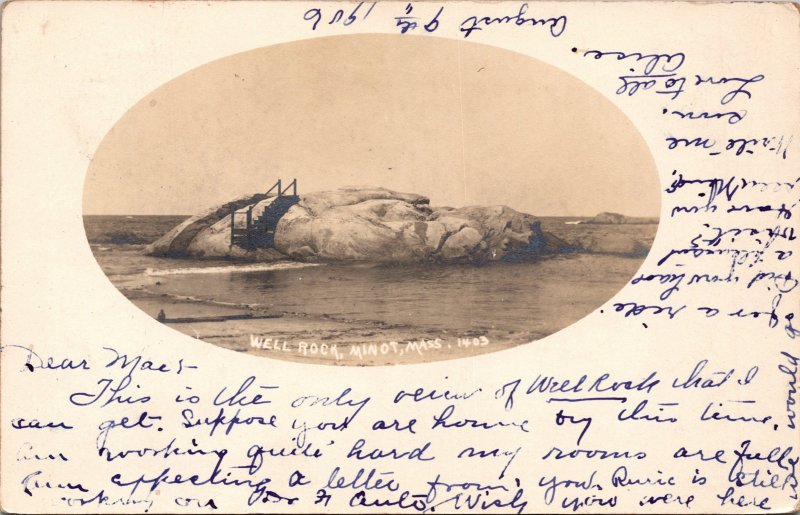 August 9th, 1906
WELL ROCK, MINOT, MASS. 1403
Dear Mae:-
This is the only view of Well Rock that I
can get. Suppose you are home by this time.
Am working quite hard my rooms are full.
Am expecting a letter from you. is still
working on Auto. Wish you were here
we would go
for a ride.
Did you have
a
Have you
seen
Write me
soon.
Love to all
Alice.